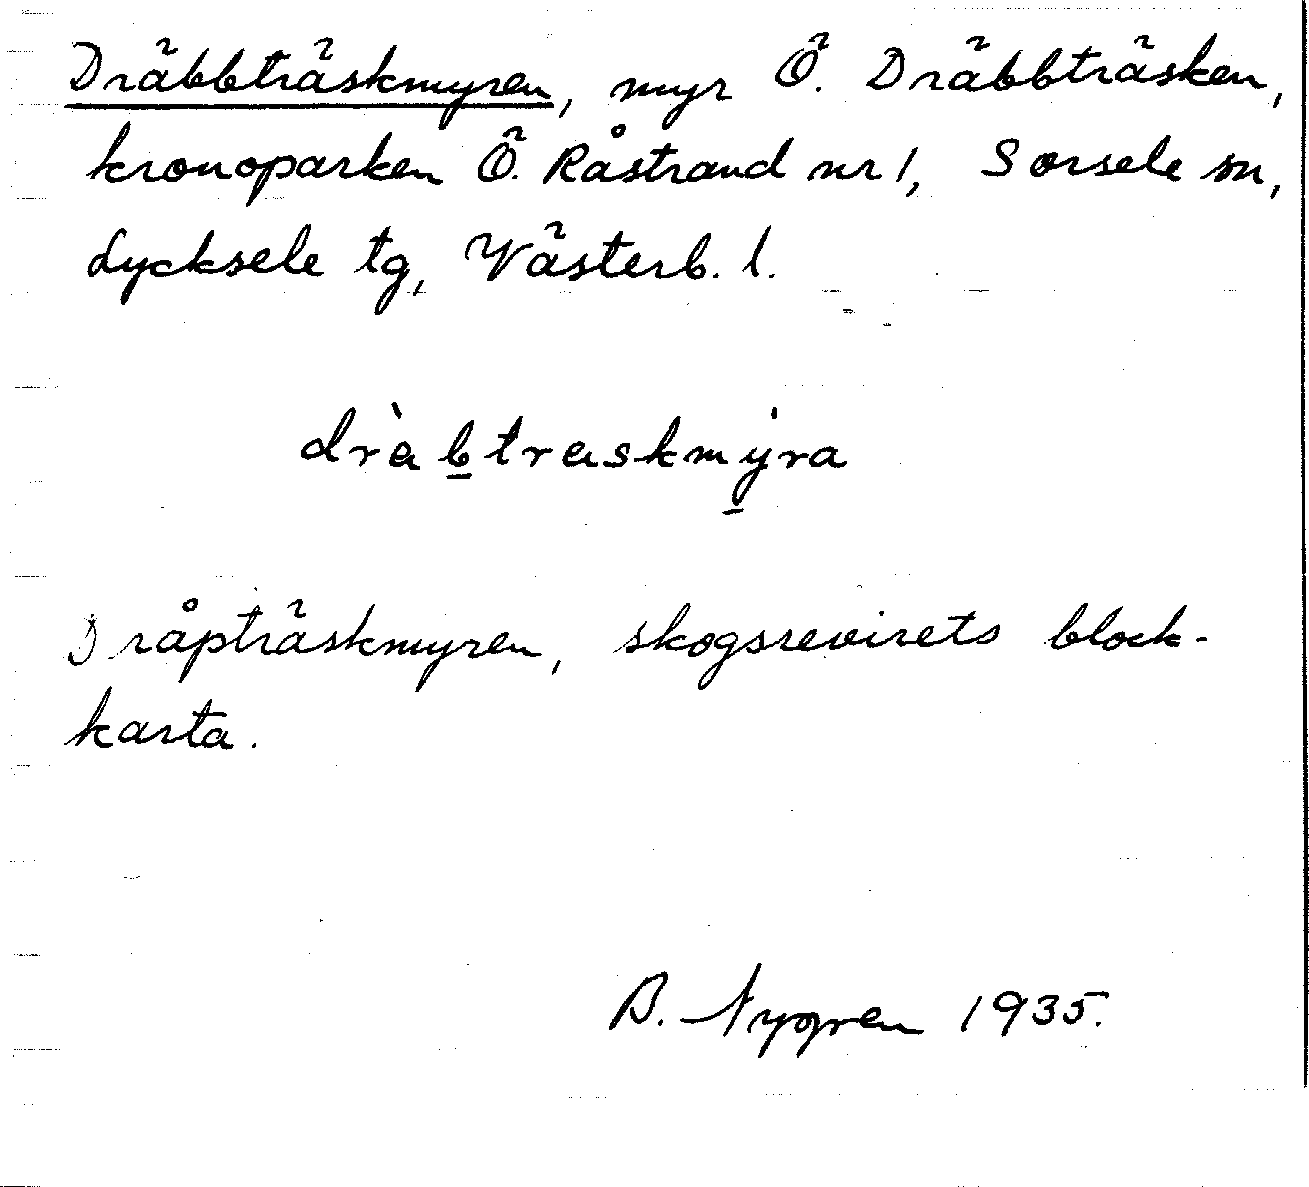 Dräbbträskmyren, myr Ö. Dräbbträsken,
kronoparken Ö. Råstrand nr 1, Sorsele sn,
Lycksele tg, Västerb. l.
dràbtraskmýra
Dråpträskmyren, skogsrevirets block-
karta.
B. Nygren 1935.